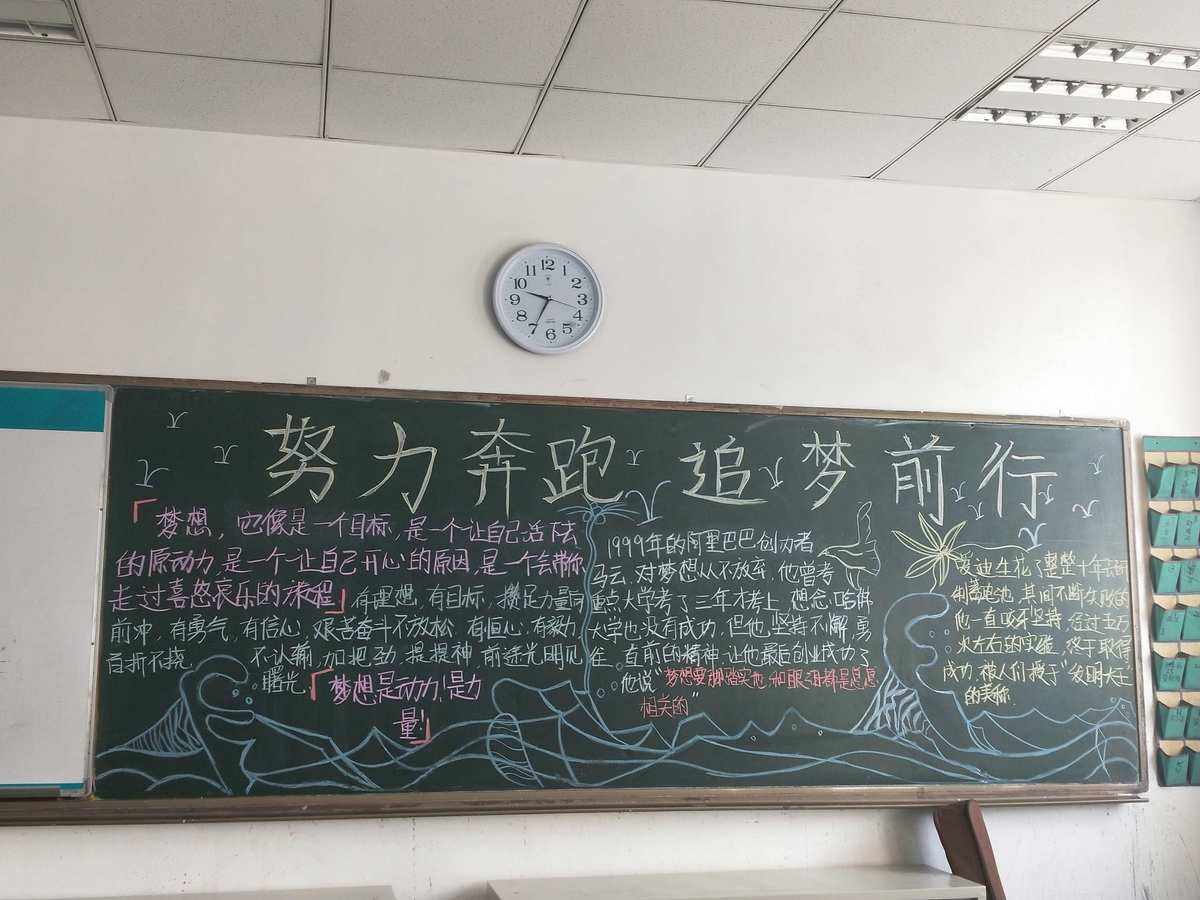 12
1
2
3
4
5
6
7
8
9
10
11
努力奔跑 追梦前行
「梦想，它像是一个目标，是一个让自己活下去
的原动力，是一个让自己开心的原因，是一个会带你
走过喜悠哀乐的旅程」有理想，有目标，攒足力量向
前冲，有勇气，有信心，艰苦奋斗不放松，有恒心，有毅力，
百折不挠， 不认输，加把劲，提提神，前途光明见
曙光，
「梦想是动力！是力
量！」
1999年的阿里巴巴创办者
马云，对梦想从不放弃，他曾考
重点大学考了三年才考上，想念哈佛
大学也没有成功，但他坚持不懈，勇
往直前的精神，让他最后创业成功了
他说“梦想要脚踏实地，和眼泪都是息息
相关的”
爱迪生花了整整十年去研
制蓄电池，其间不断失败的
他一直咬牙坚持，经过五万
次左右的实验，终于取得
成功，被人们授于“发明大王”
的美称